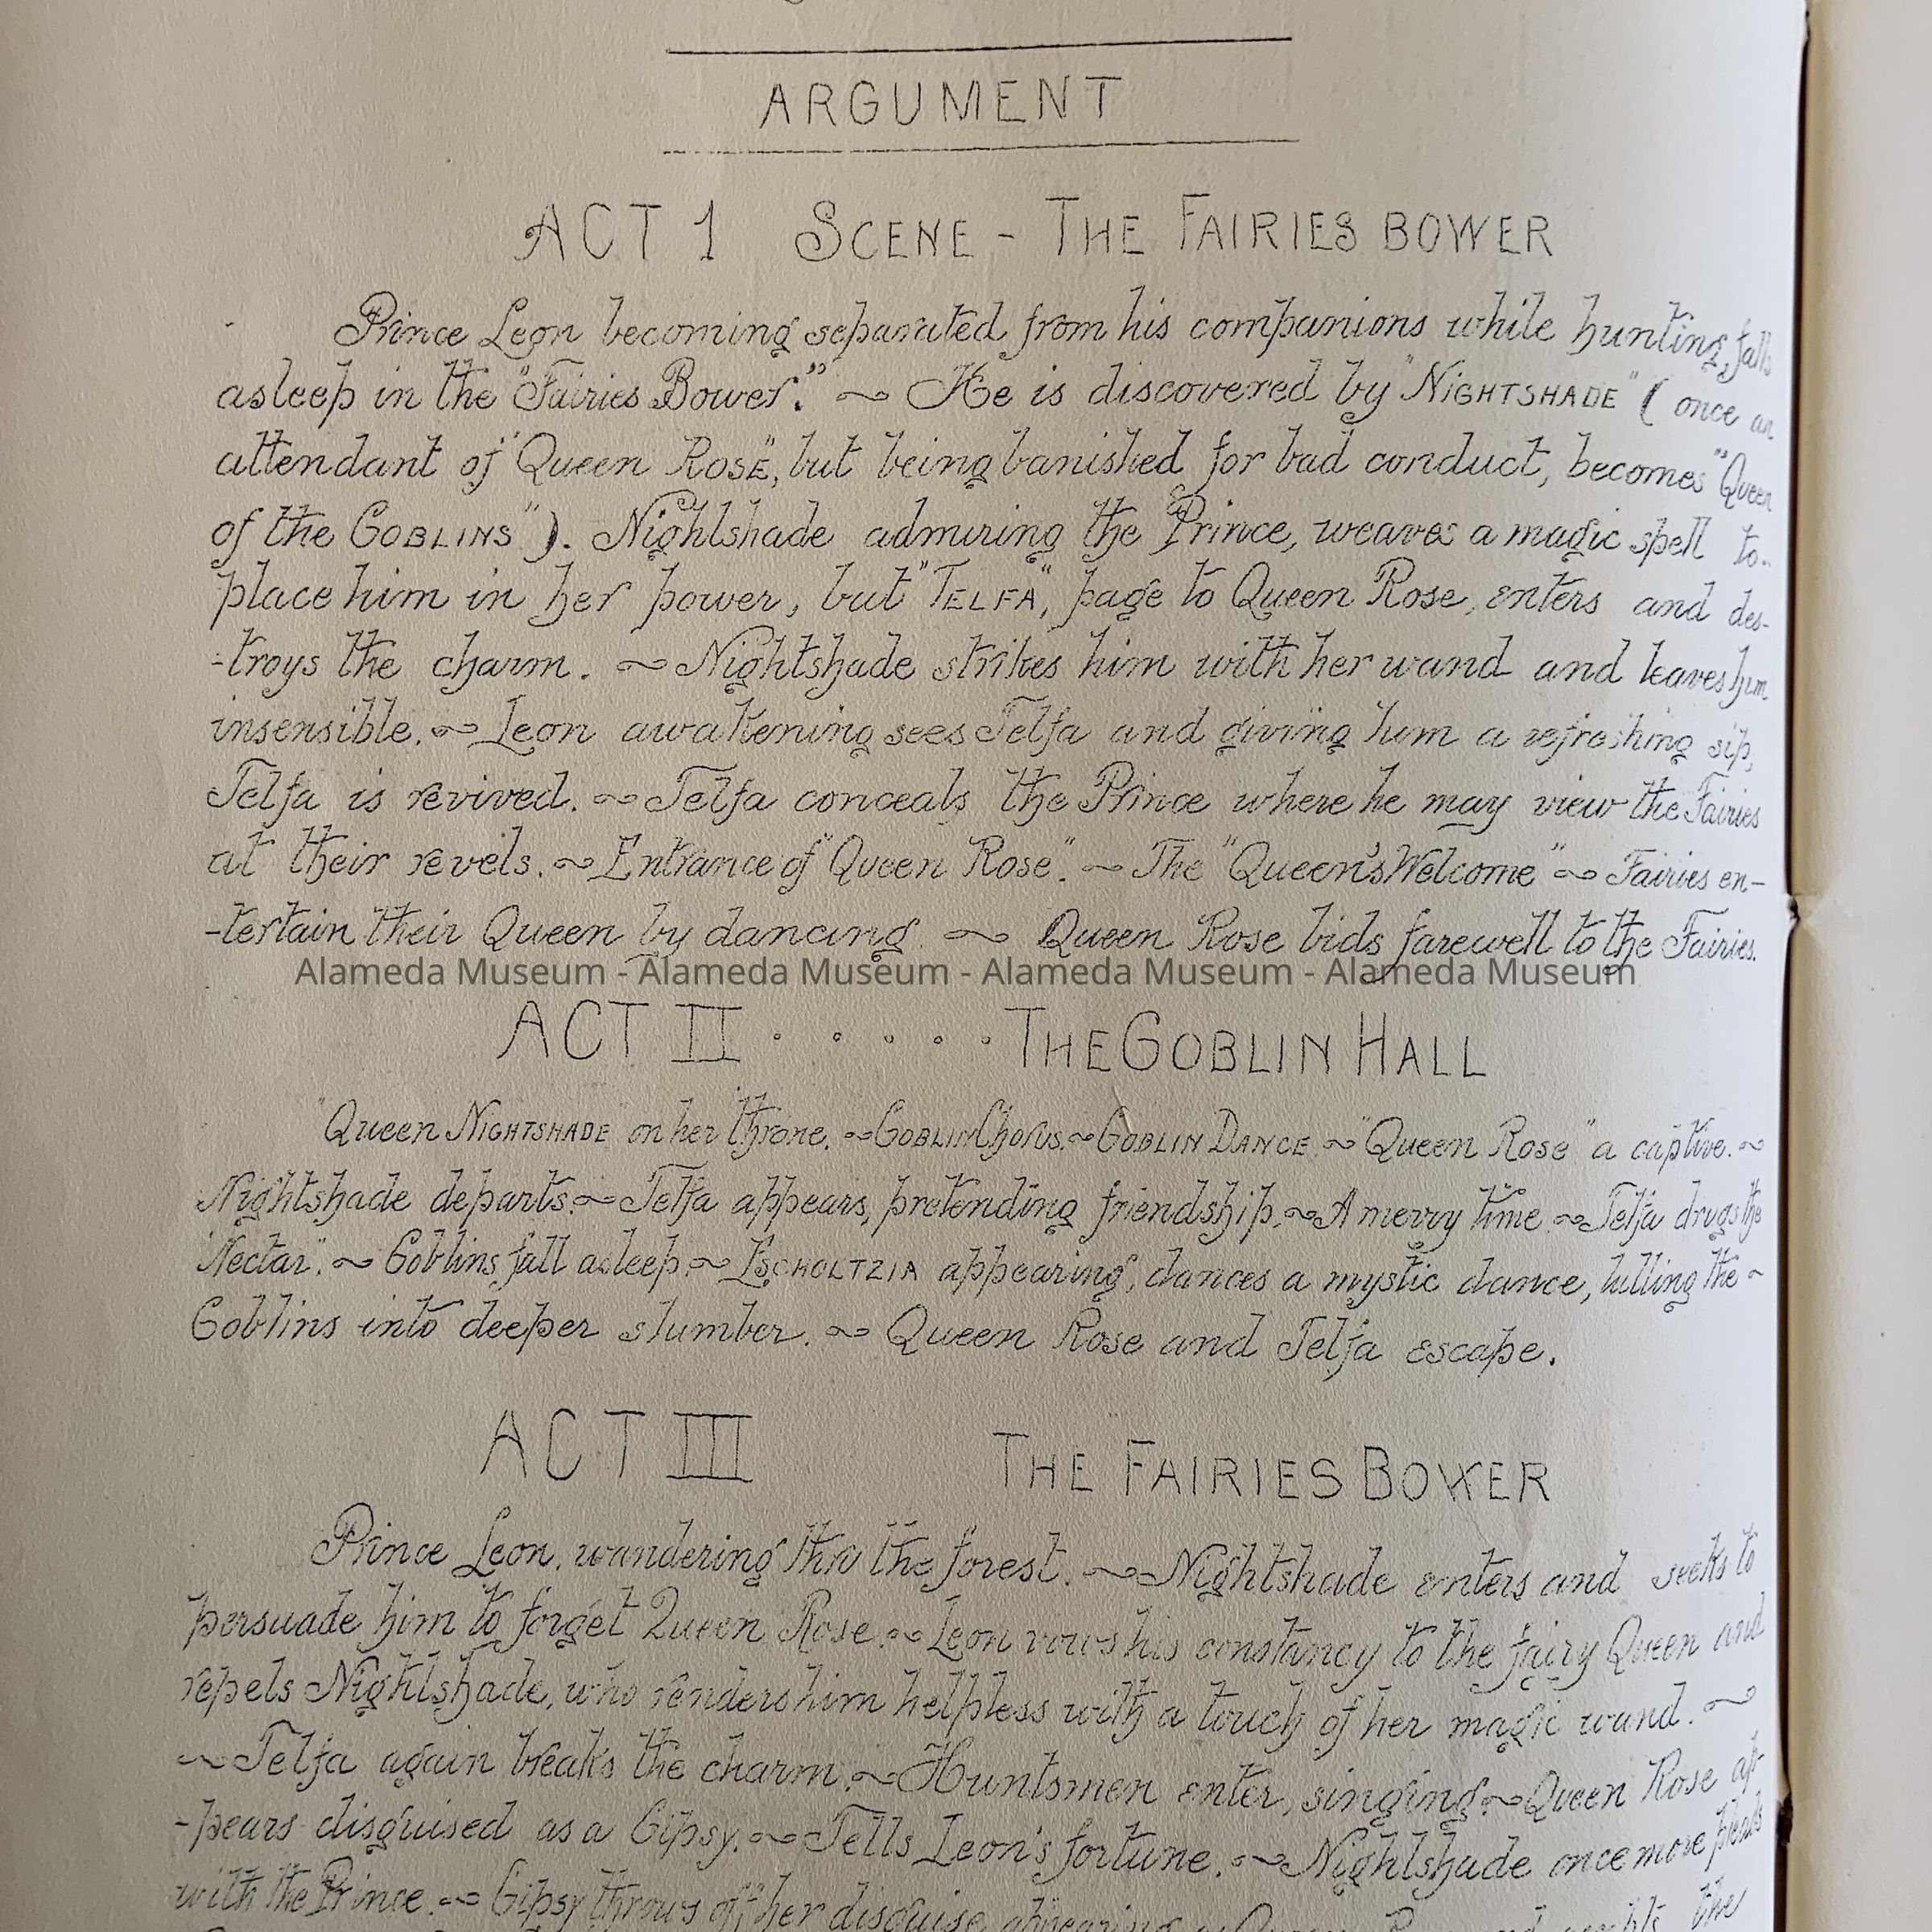 ARGUMENT
ACT 1 SCENE - THE FAIRIES BOWER
Prince Leon becoming separated from his companions while hunting, falls
asleep in the "Fairies Bower." ~ He is discovered by "NIGHTSHADE" ( once an
attendant of "Queen ROSE", but being banished for bad conduct, becomes "Queen
of the GOBLINS" ). Nightshade admiring the Prince, weaves a magic spell to-
place him in her power, but "TELFA", page to Queen Rose, enters and des-
-troys the charm. ~ Nightshade strikes him with her wand and leaves him
insensible. ~ Leon awakening sees Telfa and giving him a refreshing sip,
Telfa is revived. ~ Telfa conceals the Prince where he may view the Fairies
at their revels. ~ Entrance of "Queen Rose". ~ The "Queen's Welcome" ~ Fairies en-
-tertain their Queen by dancing. ~ Queen Rose bids farewell to the Fairies.
Alameda Museum - Alameda Museum - Alameda Museum - Alameda Museum
ACT II . . . . . THE GOBLIN HALL
"Queen NIGHTSHADE" on her throne. ~ GOBLIN Chorus. ~ GOBLIN DANCE ~ "Queen Rose" a captive. ~
Nightshade departs. ~ Telfa appears, pretending friendship. ~ A merry time. ~ Telfa drugs the
"Nectar". ~ Goblins fall asleep. ~ ESCHOLTZIA appearing, dances a mystic dance, lulling the ~
Goblins into deeper slumber. ~ Queen Rose and Telfa escape.
ACT III THE FAIRIES BOWER
Prince Leon, wandering thro the forest. ~ Nightshade enters and seeks to
persuade him to forget Queen Rose. ~ Leon vows his constancy to the fairy Queen and
repels Nightshade, who renders him helpless with a touch of her magic wand. ~
~ Telfa again breaks the charm. ~ Huntsmen enter, singing. ~ Queen Rose ap-
-pears disguised as a Gipsy. ~ Tells Leon's fortune. ~ Nightshade once more pleads
with the Prince. ~ Gipsy throws off her disguise, appearing Queen the